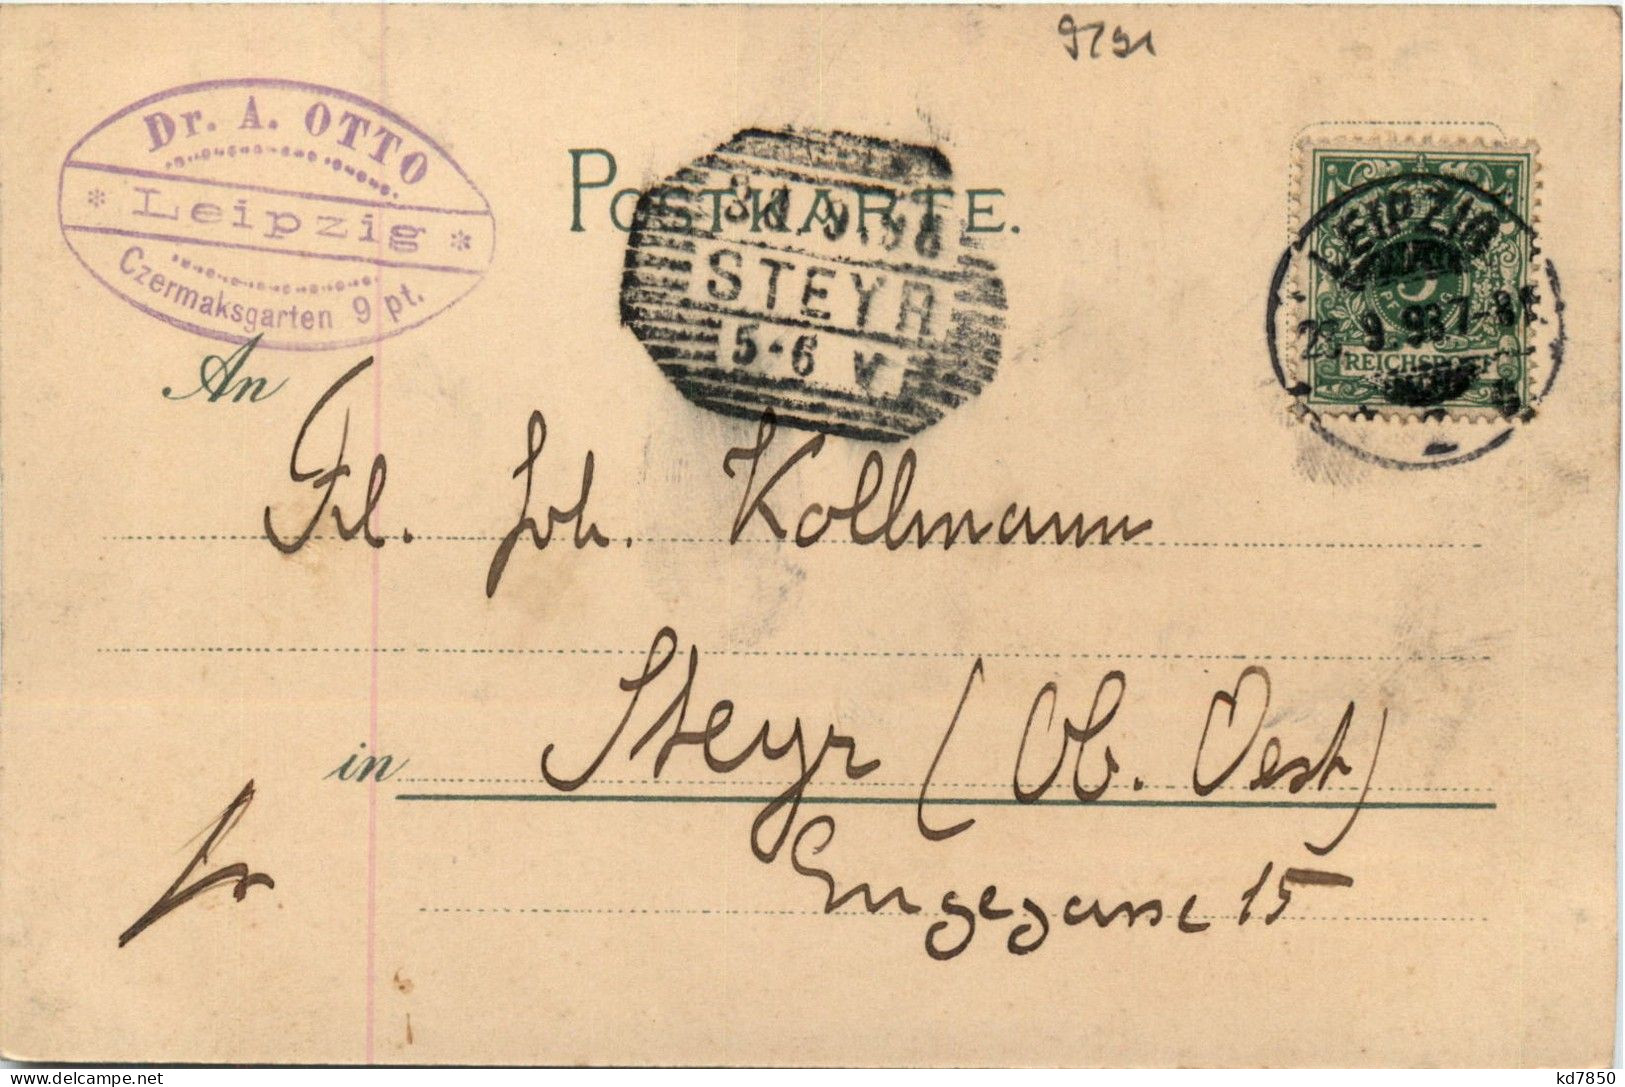 9791
Dr. A. OTTO
* Leipzig *
Czermaksgarten 9 pt.
POSTKARTE.
9.98
STEYR
5-6 V
LEIPZIG
9.98 7-8
5
REICHSPOST
An
Frl. Joh. Kollmann
in Steyr (Ob. Oest)
fr
Engegasse 15
kd7850